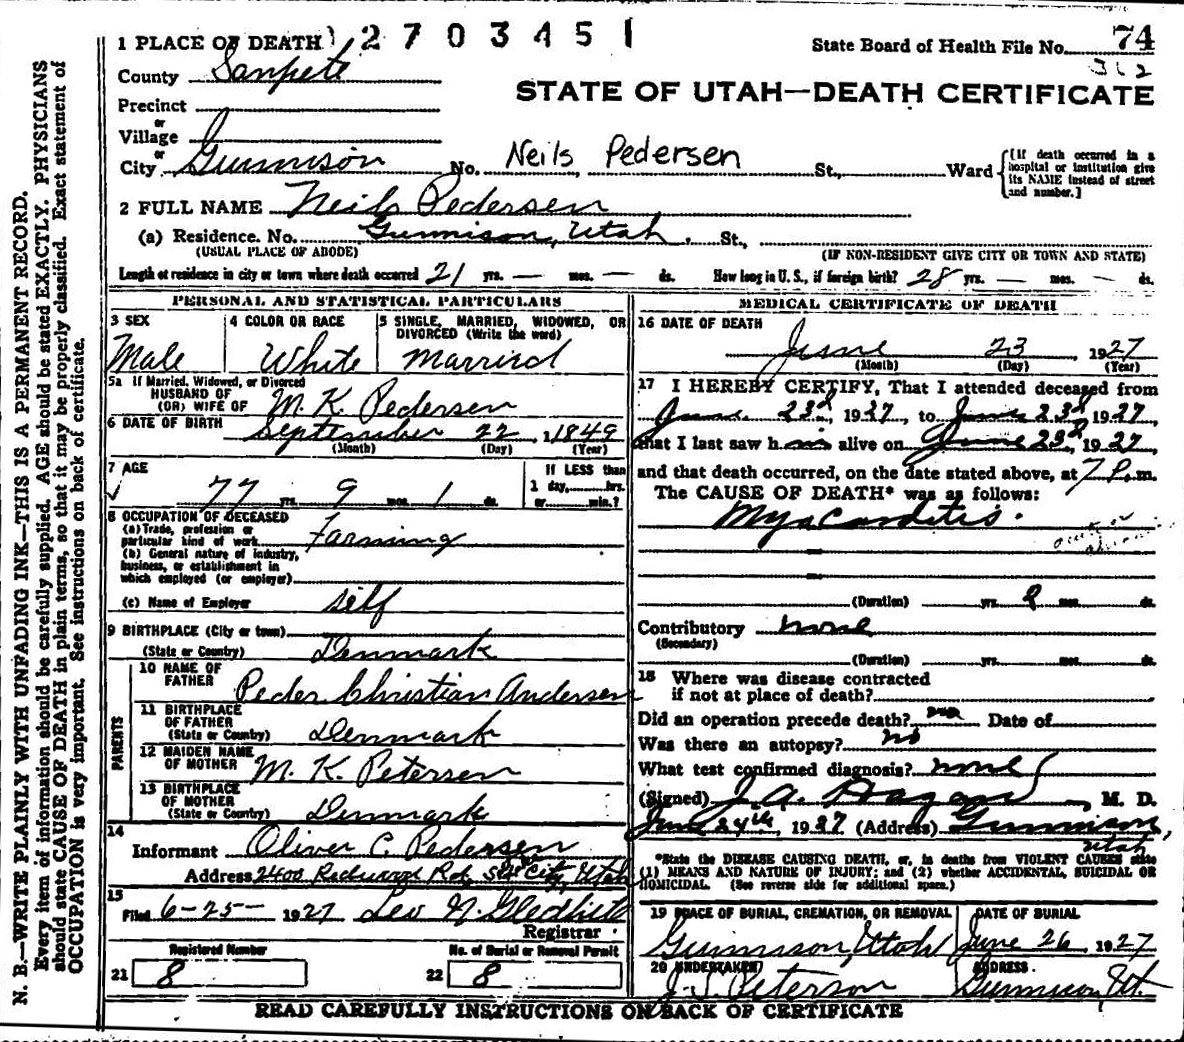 1 PLACE OF DEATH 2 7 0 3 4 5 1
State Board of Health File No. 74
312
County Sanpete
STATE OF UTAH—DEATH CERTIFICATE
Precinct
or
Village
or
City Gunnison No. Neils Pedersen St., Ward {[If death occurred in a hospital or institution give its NAME instead of street and number.]
2 FULL NAME Neils Pedersen
(a) Residence. No. Gunnison, Utah. St.,
(USUAL PLACE OF ABODE) (IF NON-RESIDENT GIVE CITY OR TOWN AND STATE)
Length of residence in city or town where death occurred 21 yrs. — mos. — ds. How long in U. S., if foreign birth? 28 yrs. — mos. — ds.
PERSONAL AND STATISTICAL PARTICULARS
3 SEX
Male
4 COLOR OR RACE
White
5 SINGLE, MARRIED, WIDOWED, OR
DIVORCED (Write the word)
Married
5a If Married, Widowed, or Divorced
HUSBAND OF
(OR) WIFE OF M. K. Pedersen
6 DATE OF BIRTH September 22, 1849
(Month) (Day) (Year)
7 AGE
77 yrs. 9 mos. 1 ds.
If LESS than
1 day, hrs.
or min.?
8 OCCUPATION OF DECEASED
(a) Trade, profession or
particular kind of work Farming
(b) General nature of industry,
business, or establishment in
which employed (or employer)
(c) Name of Employer self
9 BIRTHPLACE (City or town)
(State or Country) Denmark
PARENTS
10 NAME OF
FATHER Peder Christian Andersen
11 BIRTHPLACE
OF FATHER
(State or Country) Denmark
12 MAIDEN NAME
OF MOTHER M. K. Petersen
13 BIRTHPLACE
OF MOTHER
(State or Country) Denmark
14
Informant Oliver C. Pedersen
Address 2400 Redwood Rd, Salt Lake City, Utah
15
Filed 6-25- 1927 Leo N. Gledhill
Registrar
Registered Number No. of Burial or Removal Permit
21 8 22 8
MEDICAL CERTIFICATE OF DEATH
16 DATE OF DEATH
June 23, 1927
(Month) (Day) (Year)
17 I HEREBY CERTIFY, That I attended deceased from
June 23d, 1927, to June 23d, 1927
that I last saw him alive on June 23d, 1927
and that death occurred, on the date stated above, at 7 P. m.
The CAUSE OF DEATH* was as follows:
Myacarditis.
(Duration) yrs. 2 mos. ds.
Contributory none
(Secondary)
(Duration) yrs. mos. ds.
18 Where was disease contracted
if not at place of death?
Did an operation precede death? no Date of
Was there an autopsy? no
What test confirmed diagnosis? none
(Signed) J. A. Hagan, M. D.
June 24th, 1927 (Address) Gunnison,
Utah
*State the DISEASE CAUSING DEATH, or, in deaths from VIOLENT CAUSES state
(1) MEANS AND NATURE OF INJURY; and (2) whether ACCIDENTAL, SUICIDAL OR
HOMICIDAL. (See reverse side for additional space.)
19 PLACE OF BURIAL, CREMATION, OR REMOVAL
Gunnison, Utah
DATE OF BURIAL
June 26 1927
20 UNDERTAKER
J. S. Peterson
ADDRESS
Gunnison, Ut.
READ CAREFULLY INSTRUCTIONS ON BACK OF CERTIFICATE
N. B.—WRITE PLAINLY WITH UNFADING INK—THIS IS A PERMANENT RECORD.
Every item of information should be carefully supplied. AGE should be stated EXACTLY. PHYSICIANS
should state CAUSE OF DEATH in plain terms, so that it may be properly classified. Exact statement of
OCCUPATION is very important. See instructions on back of certificate.